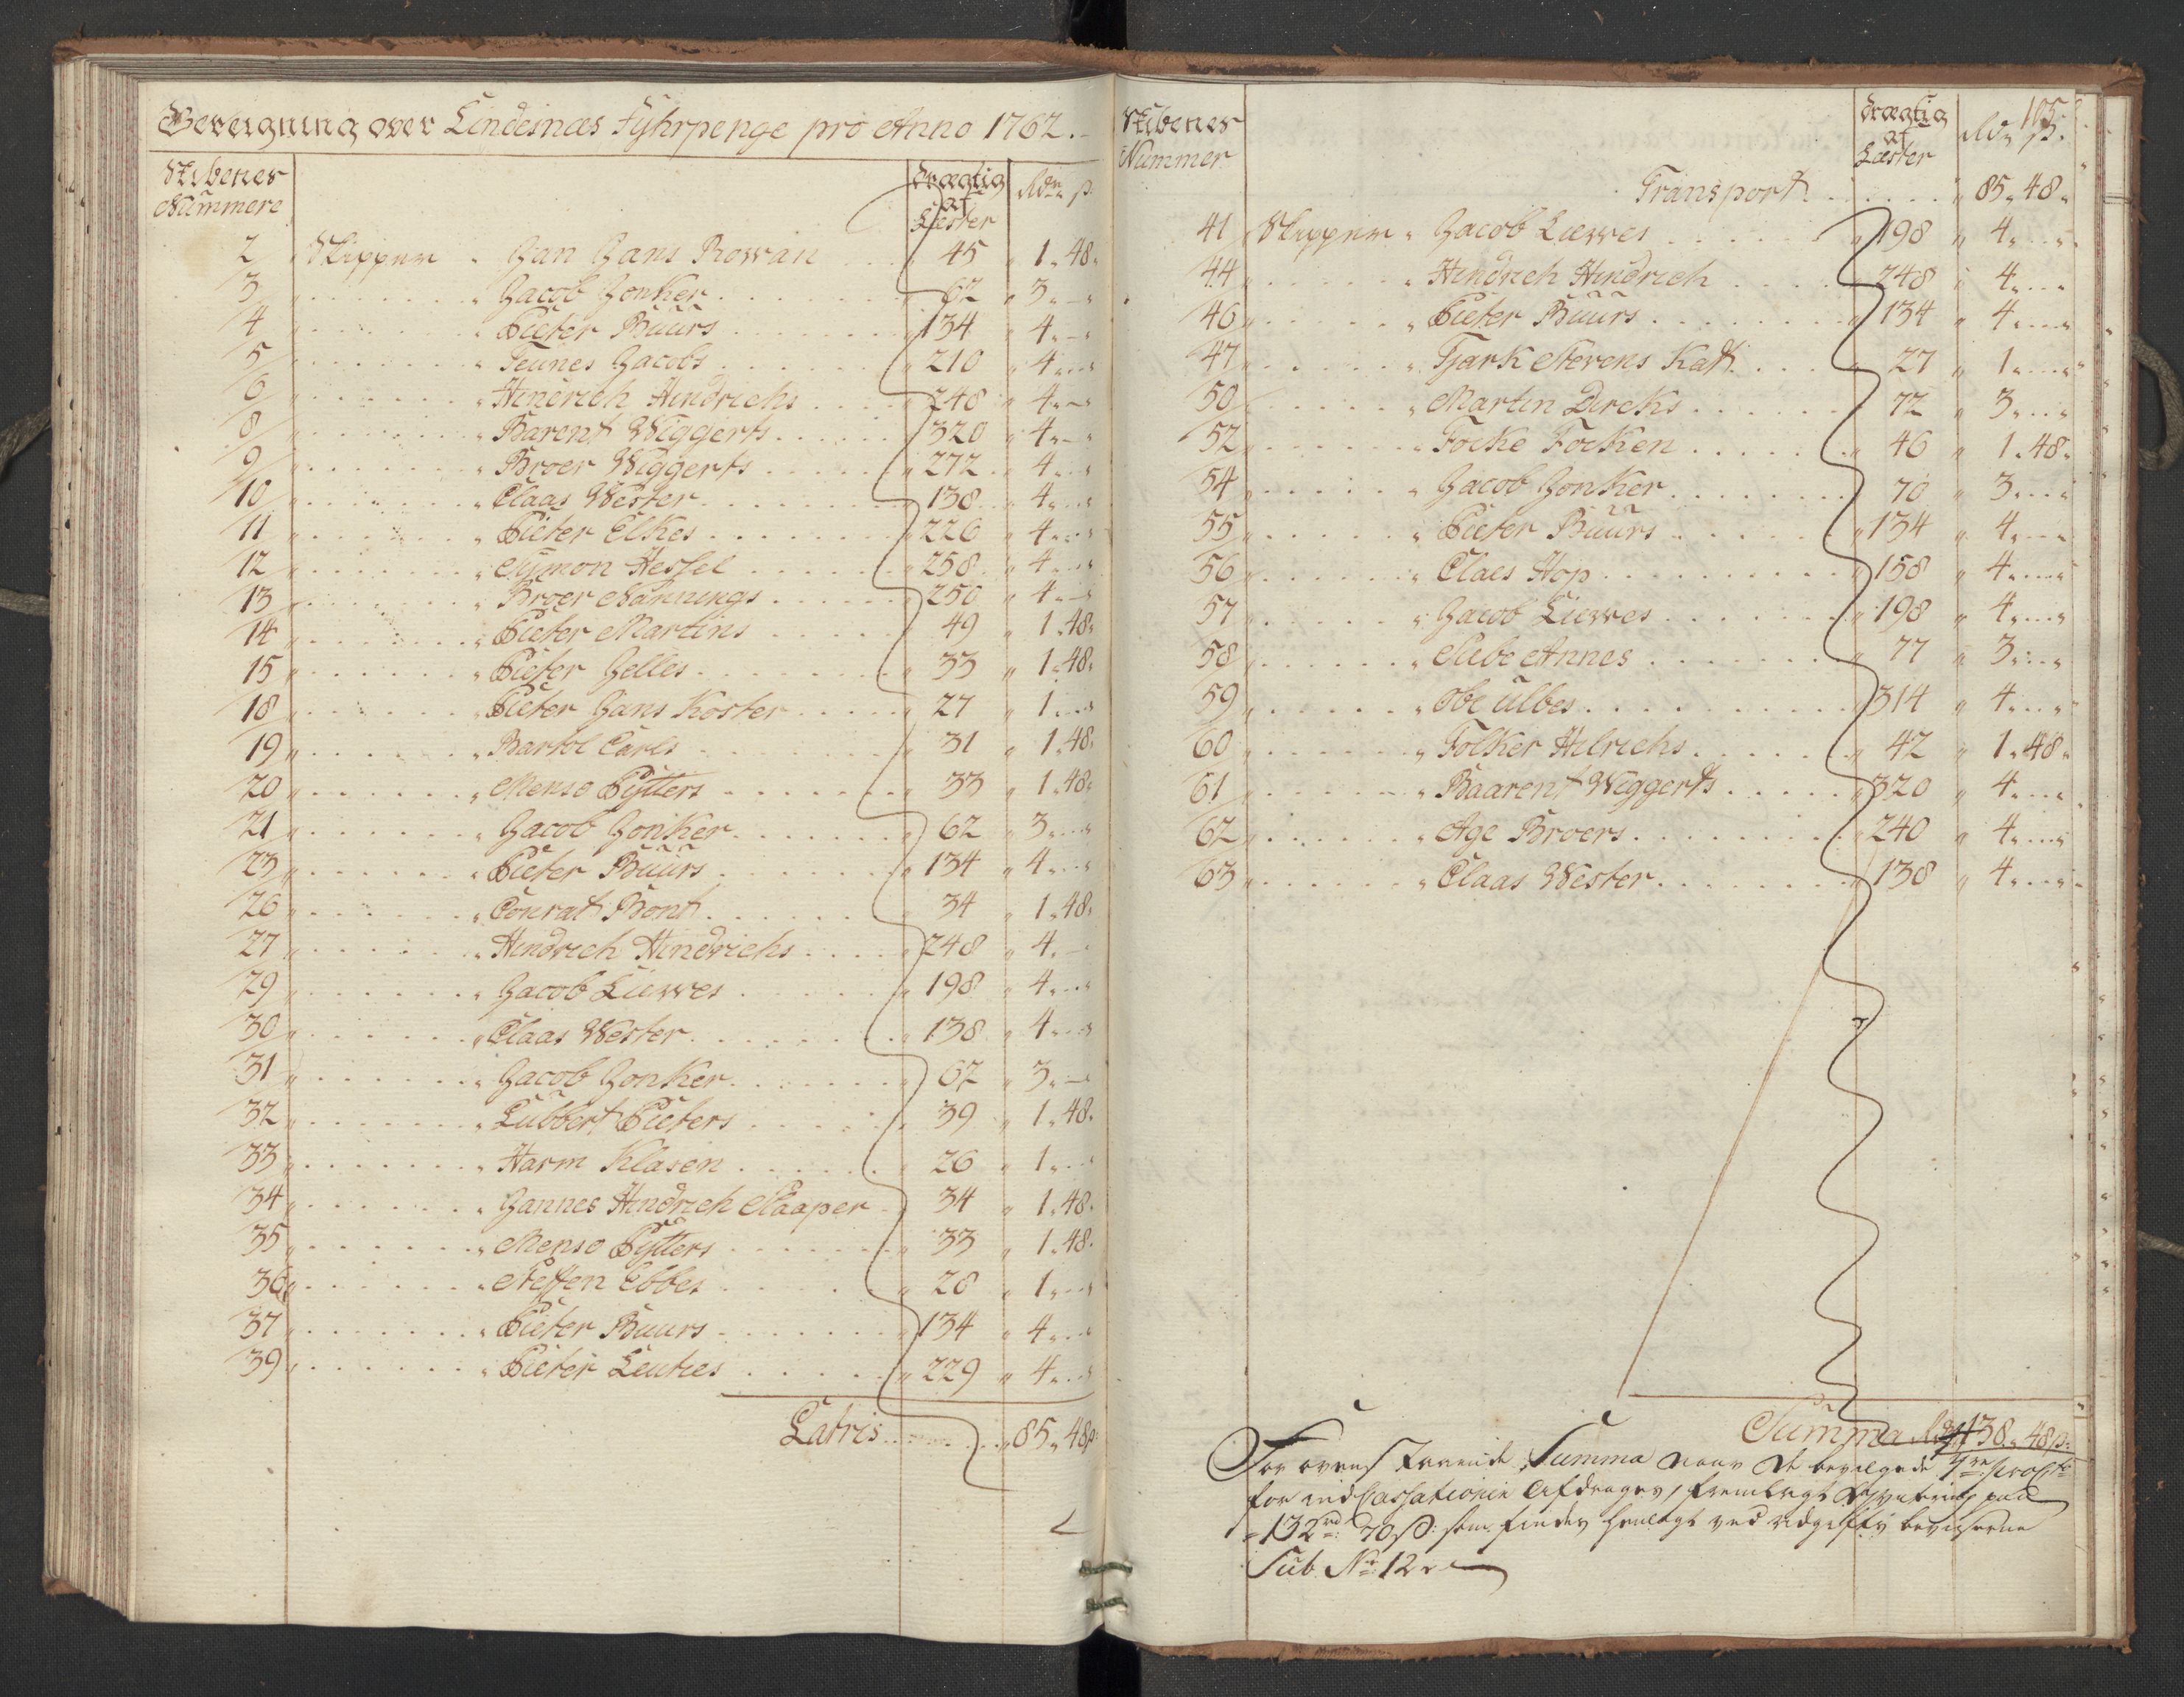 Beregning over Lindesnæs Fyhrpenge pro Anno 1762.
Skibenes Nummere | Drægtig af Læster | Rdr ß
2 Skipper Jan Jans Rowan 45 1. 48.
3 Jacob Jonker 62 3. –
4 Pieter Buurs 134 4. –
5 Teunes Jacobs 210 4. –
6 Hindrich Hindrichs 248 4. –
8 Barent Wiggerts 320 4. –
9 Broer Wiggerts 272 4. –
10 Claas Wester 138 4. –
11 Pieter Elkes 226 4. –
12 Symon Hessel 258 4. –
13 Broer Nannings 250 4. –
14 Pieter Martins 49 1. 48.
15 Pieter Jelles 33 1. 48.
18 Pieter Jans Koster 27 1. –
19 Bartol Carls 31 1. 48.
20 Menso Pytters 33 1. 48.
21 Jacob Jonker 62 3. –
23 Pieter Buurs 134 4. –
26 Conrat Bont 34 1. 48.
27 Hindrich Hindrichs 248 4. –
29 Jacob Liewes 198 4. –
30 Claas Wester 138 4. –
31 Jacob Jonker 62 3. –
32 Lubbert Pieters 39 1. 48.
33 Harm Klasen 26 1. –
34 Jannes Hindrich Slaaper 34 1. 48.
35 Menso Pytters 33 1. 48.
36 Steffen Ebbes 28 1. –
37 Pieter Buurs 134 4. –
39 Pieter Leuties 229 4. –
Latris 85. 48ß
105
Skibenes Nummer | Drægtig af Læster | Rdr ß.
Transport 85. 48.
41 Skipper Jacob Liewes 198 4. –
44 Hindrich Hindrich 248 4. –
46 Pieter Buurs 134 4. –
47 Tjark Stevens Katt 27 1. –
50 Martin Dircks 72 3. –
52 Focke Focken 46 1. 48.
54 Jacob Jonker 70 3. –
55 Pieter Buurs 134 4. –
56 Claes Hop 158 4. –
57 Jacob Liewes 198 4. –
58 Sibe Annes 77 3. –
59 Obe Ulbes 314 4. –
60 Folker Hilrichs 42 1. 48.
61 Baarent Wiggerts 320 4. –
62 Age Broers 240 4. –
63 Claas Wester 138 4. –
Summa Rdr 138. 48ß.
For ovenstaaende Summa naar de bevilgede 4re pro Cto
for indCassationen Afdrages, fremlagt qvitering paa
132rd: 70ß: som findes henlagt ved udgifts beviserne
Sub No 12